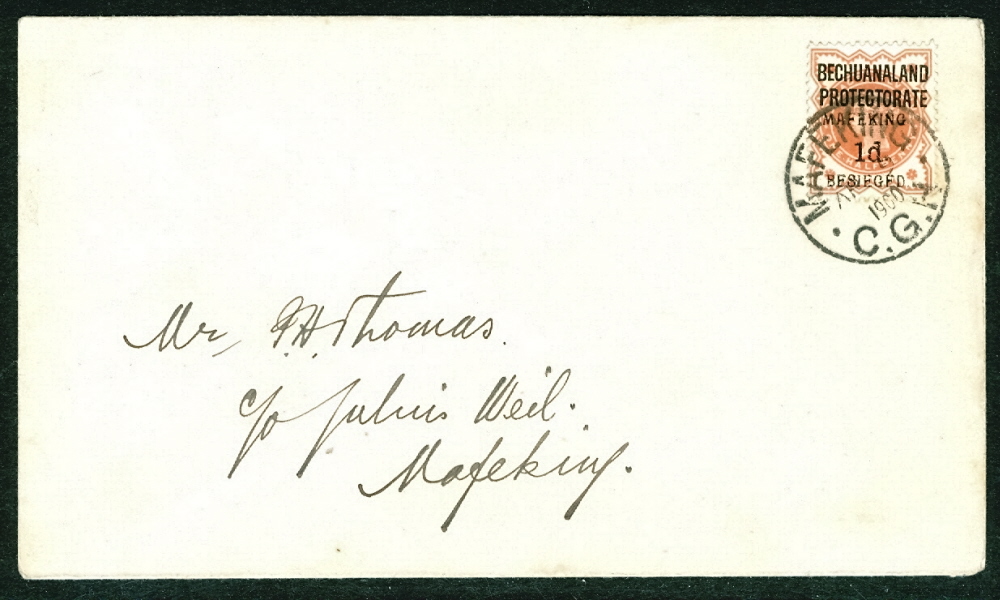 BECHUANALAND
PROTECTORATE
MAFEKING
1d.
BESIEGED.
MAFEKING
1900
C.G.H.
Mr, J.H. Thomas.
c/o Julius Weil.
Mafeking.